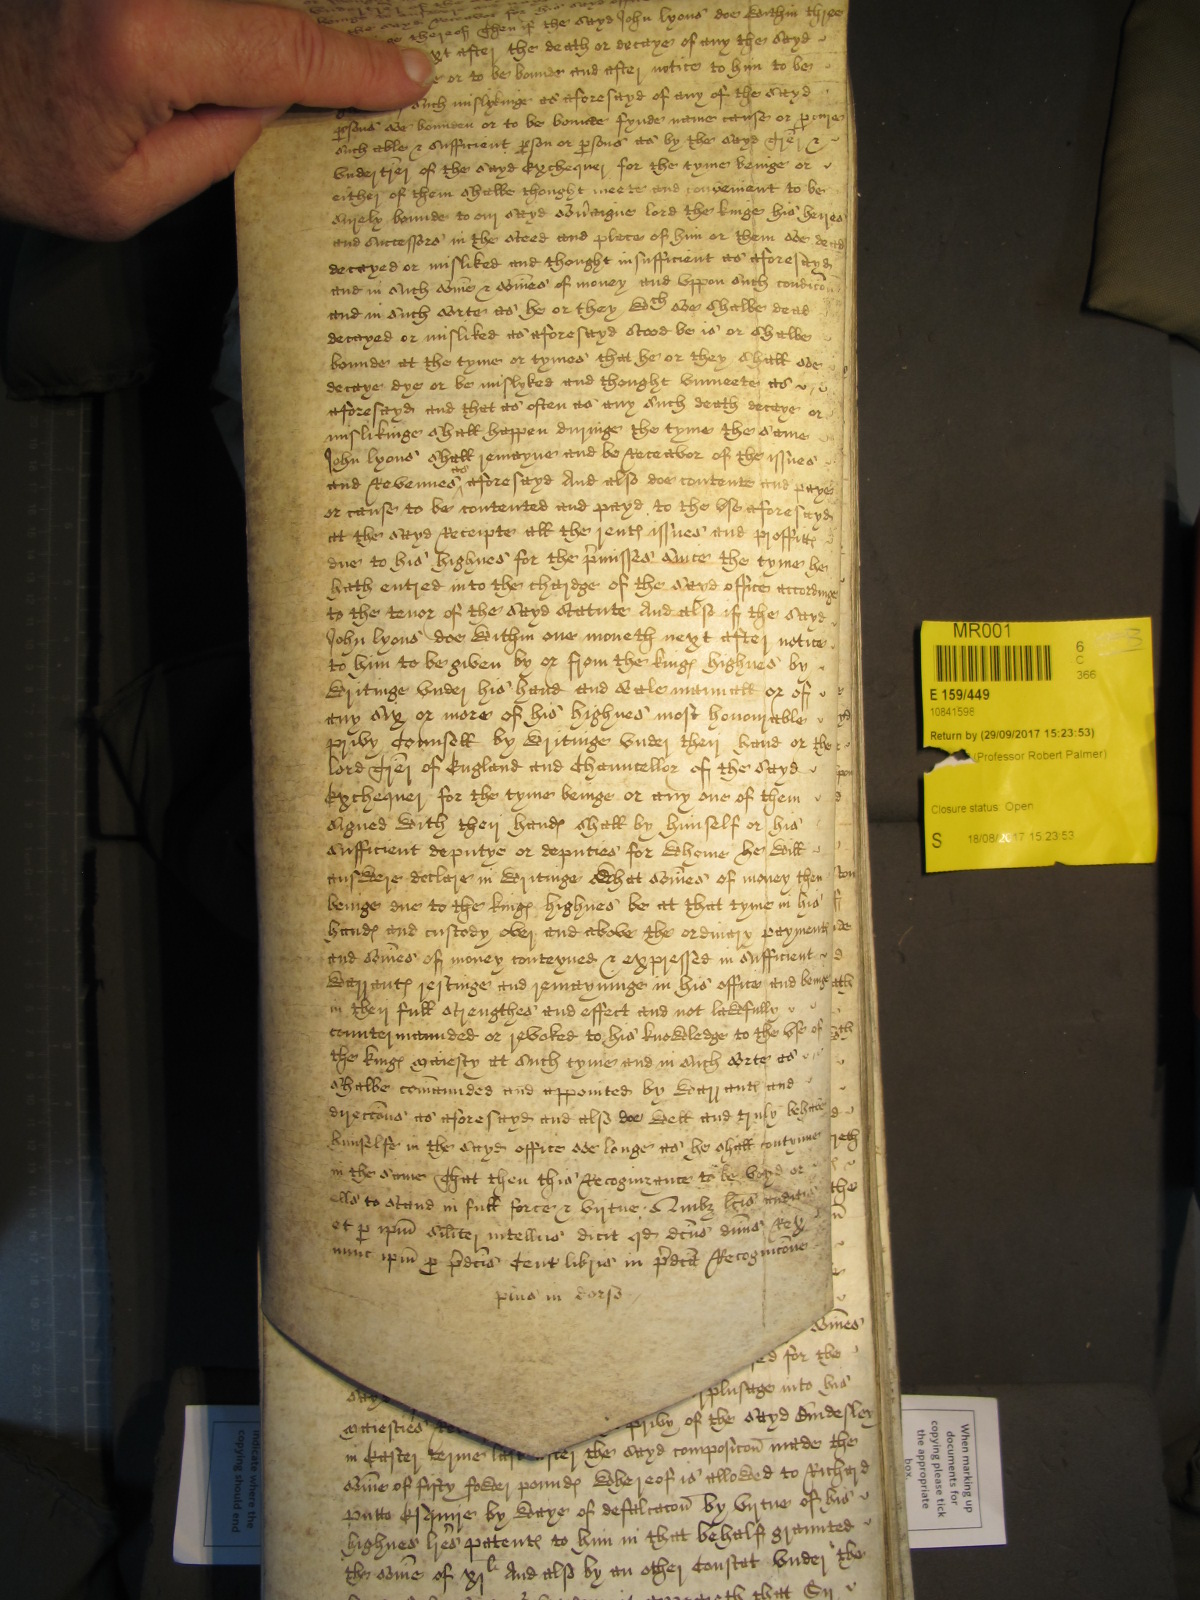 the sayd
thereof Then if the sayd John lyons doe within three
next after the death or decaye of any the sayd
or to be bounde and after notice to him to be
such mislykinge as aforesayd of any of the sayd
psons soe bounden or to be bounde fynde name cause or pcure
such able & sufficient pson or psons as by the sayd Trer &
undertrer of the sayd Exchequer for the tyme beinge or
either of them shalbe thought meete and convenient to be
surely bounde to our sayd Souaigne lord the kinge his heires
and successors in the steed and place of him or them soe dead
decayed or misliked and thought insufficient as aforesayd
and in such some & somes of money and uppon such condicon
and in such sorte as he or they wch soe shalbe dead
decayed or misliked as aforesayd stood be is or shalbe
bounde at the tyme or tymes that he or they shall soe
decaye dye or be mislyked and thought unmeete as
aforesayd and that as often as any such death decaye or
mislikinge shall happen duringe the tyme the same
John lyons shall remayne and be Receavor of the issues
and Revennes as aforesayd And also doe contente and paye
or cause to be contented and payd to the use aforesayd
at the sayd Receipte all the rents issues and proffitts
due to his highnes for the pmisses since the tyme he
hath entred into the chardge of the sayd office accordinge
to the tenor of the sayd statute And also if the sayd
John lyons doe within one moneth next after notice
to him to be given by or from the kings highnes by
writinge under his hand and seale manuall or of
any six or more of his highnes most honorable
privy Counsell by writinge under their hand or the
lord Trer of England and Chauncellor of the sayd
Exchequer for the tyme beinge or any one of them
signed with their hands shall by himself or his
sufficient deputye or deputies for whome he will
answere declare in writinge what somes of money then
beinge due to the kings highnes be at that tyme in his
hands and custody over and above the ordinary payments
and somes of money conteyned & expressed in sufficient
warrants restinge and remayninge in his office and beinge
in their full strengthes and effect and not lawfully
countermaunded or revoked to his knowledge to the use of
the kings maiesty at such tyme and in such sorte as
shalbe commanded and appointed by warrants and
direccons as aforesayd and also doe well and truly behave
himselfe in the sayd office soe longe as he shall contynue
in the same That then this Recognizance to be voyd or
ells to stand in full force & virtue Quibz lris auditis
et p ipm siliter intellcis dicit qd dcus dnus Rex
nunc ipm p pdcis Cent libris in pdca Recognicone
plus in dorso
somes
for the
plusage into his
maiesties privy of the sayd Emdesley
in Easter terme after the sayd composicon made the
some of fifty fower pounds whereof is allowed to Richard
putto Esquire by waye of defalcacon by virtue of his
highnes lres patents to him in that behalf graunted
the some of xl And also by an other Constat under the
that
MR001
6
C
366
E 159/449
10841598
Return by (29/09/2017 15:23:53)
(Professor Robert Palmer)
Closure status: Open
S 18/08/2017 15:23:53
When marking up
documents for
copying please tick
the appropriate
box.
indicate where the
copying should end